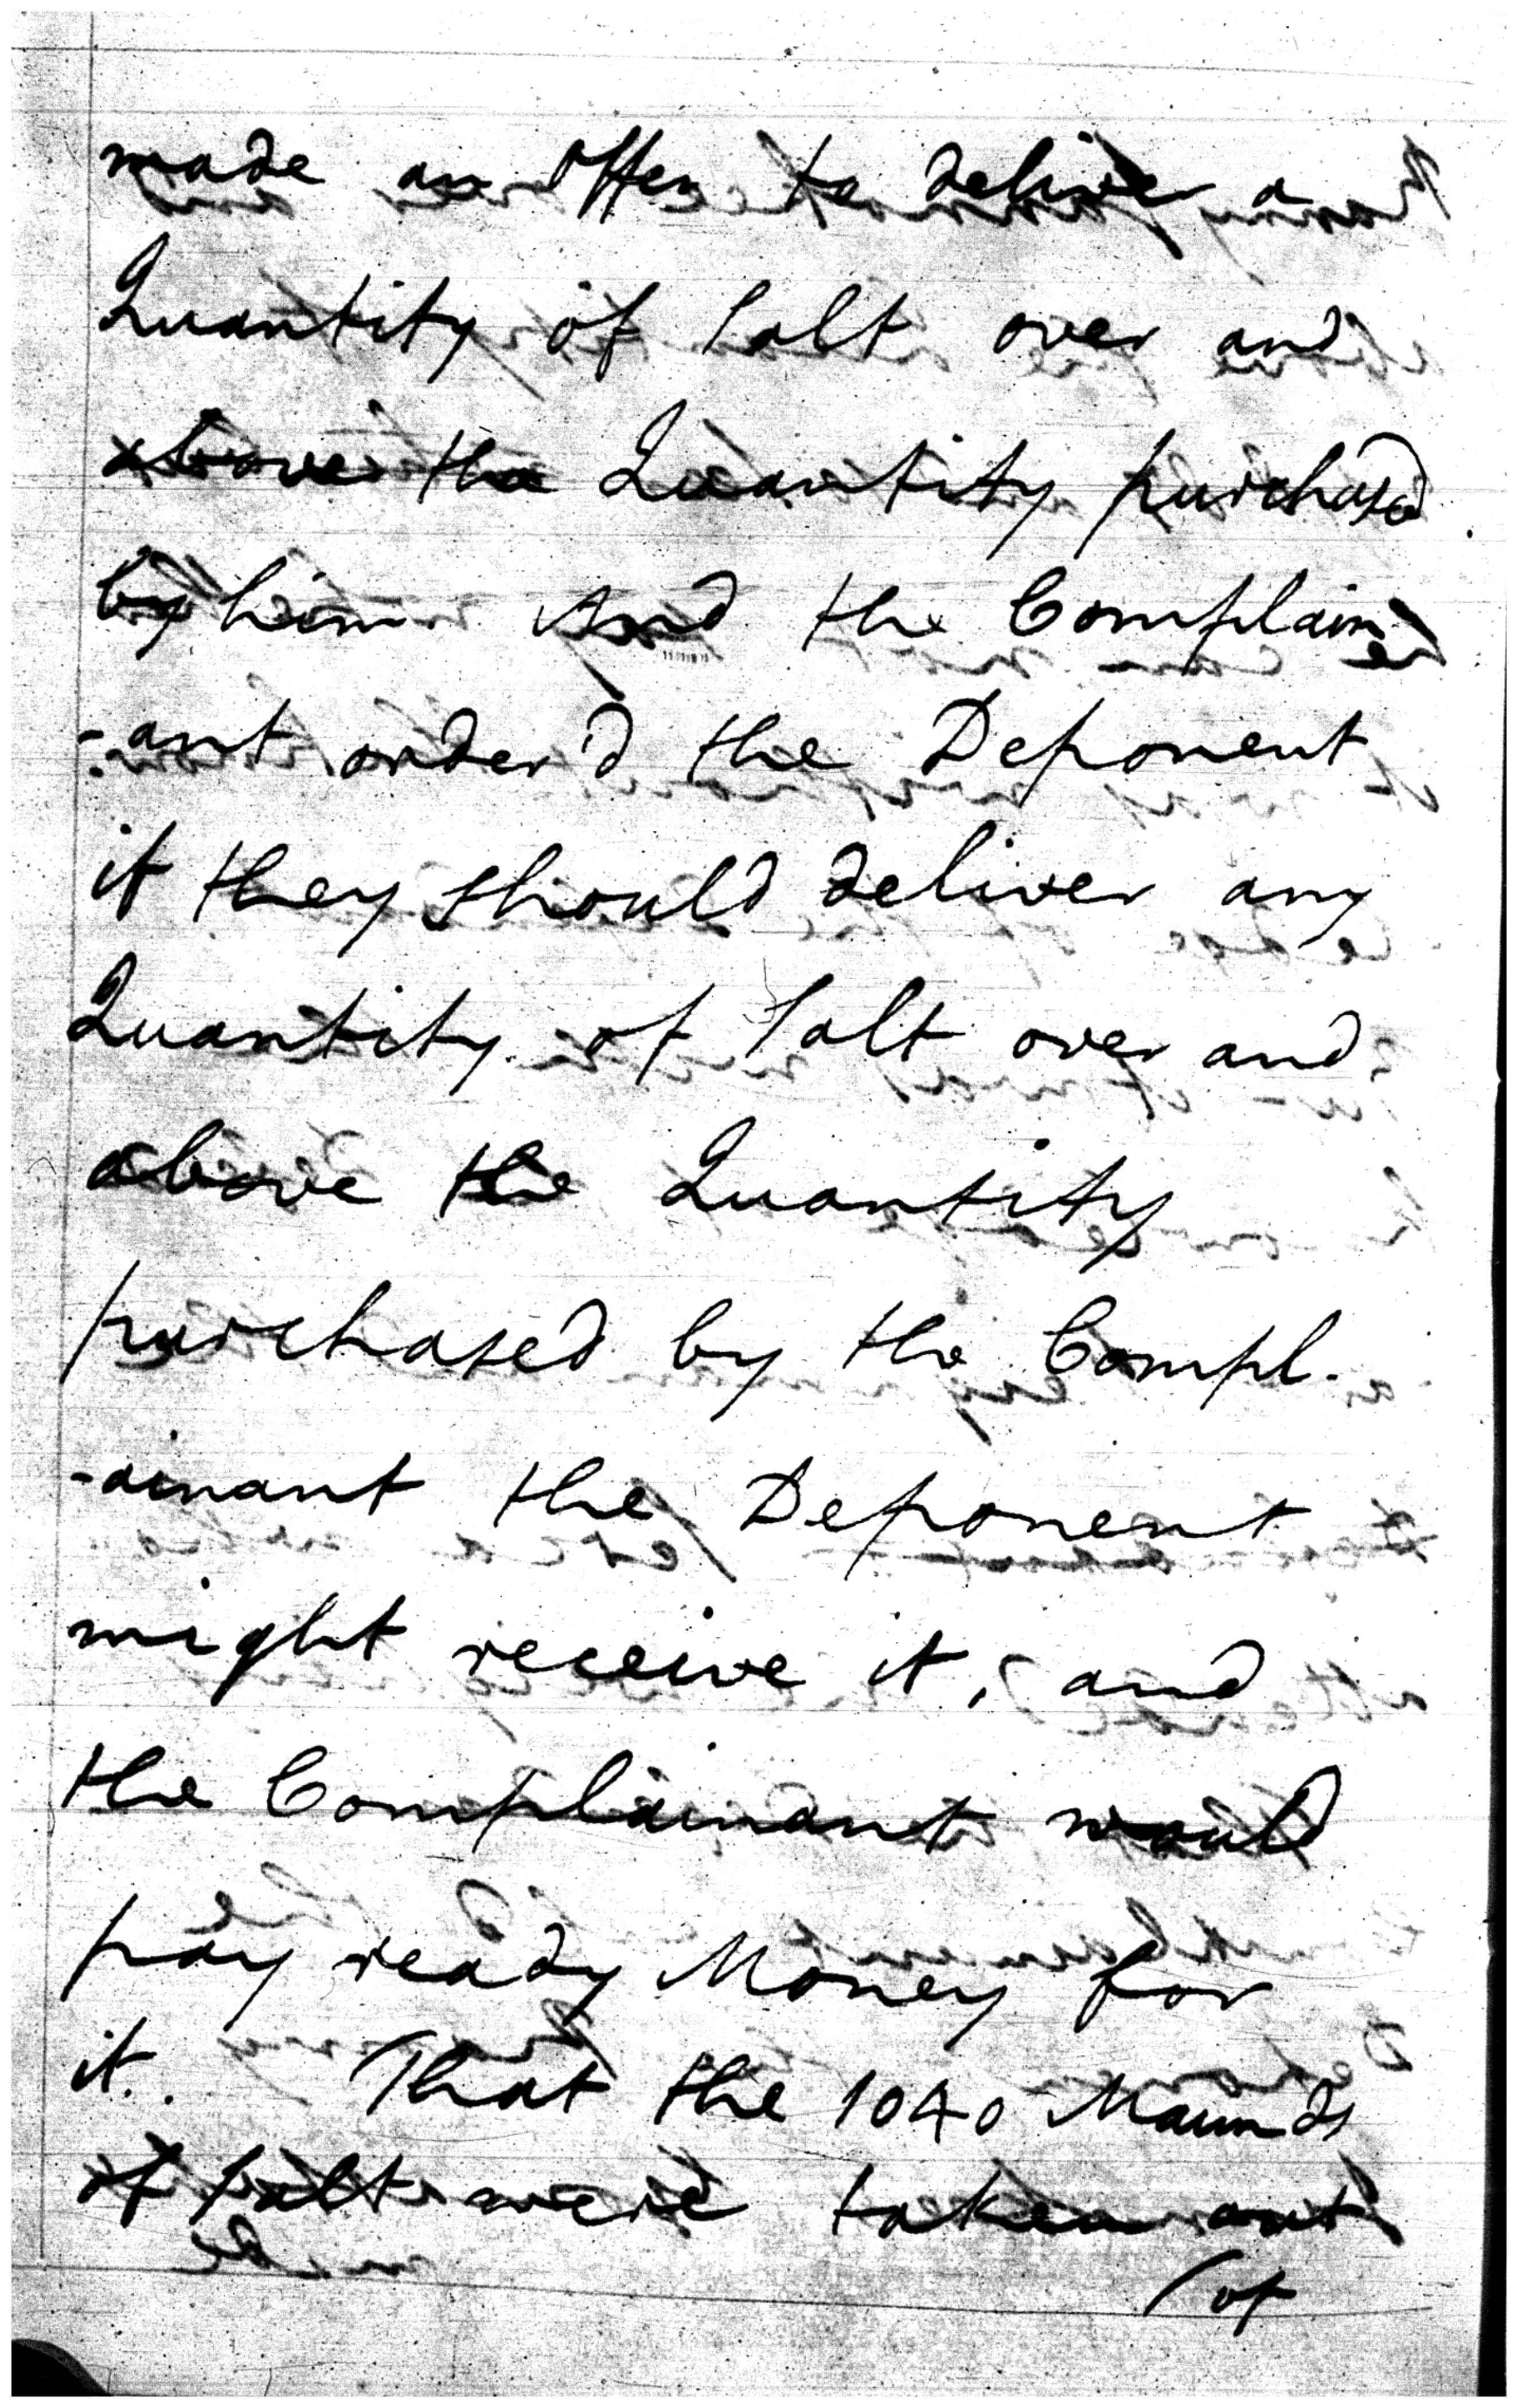 made an Offer to deliver a
Quantity of Salt over and
above the Quantity purchased
by him And the Complain
-ant order'd the Deponent
if they should deliver any
Quantity of Salt over and
above the Quantity
purchased by the Compl-
-ainant the Deponent
might receive it, and
the Complainant would
pay ready Money for
it. That the 1040 Maunds
of Salt were taken out
(of